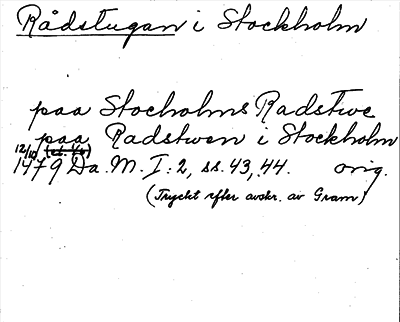 Rådstugan i Stockholm
paa Stocholms Radstwe
paa Radstwen i Stockholm
12/10
1479 Da. M. I: 2, ss. 43, 44. orig.
(Tryckt efter avskr. av Gram)